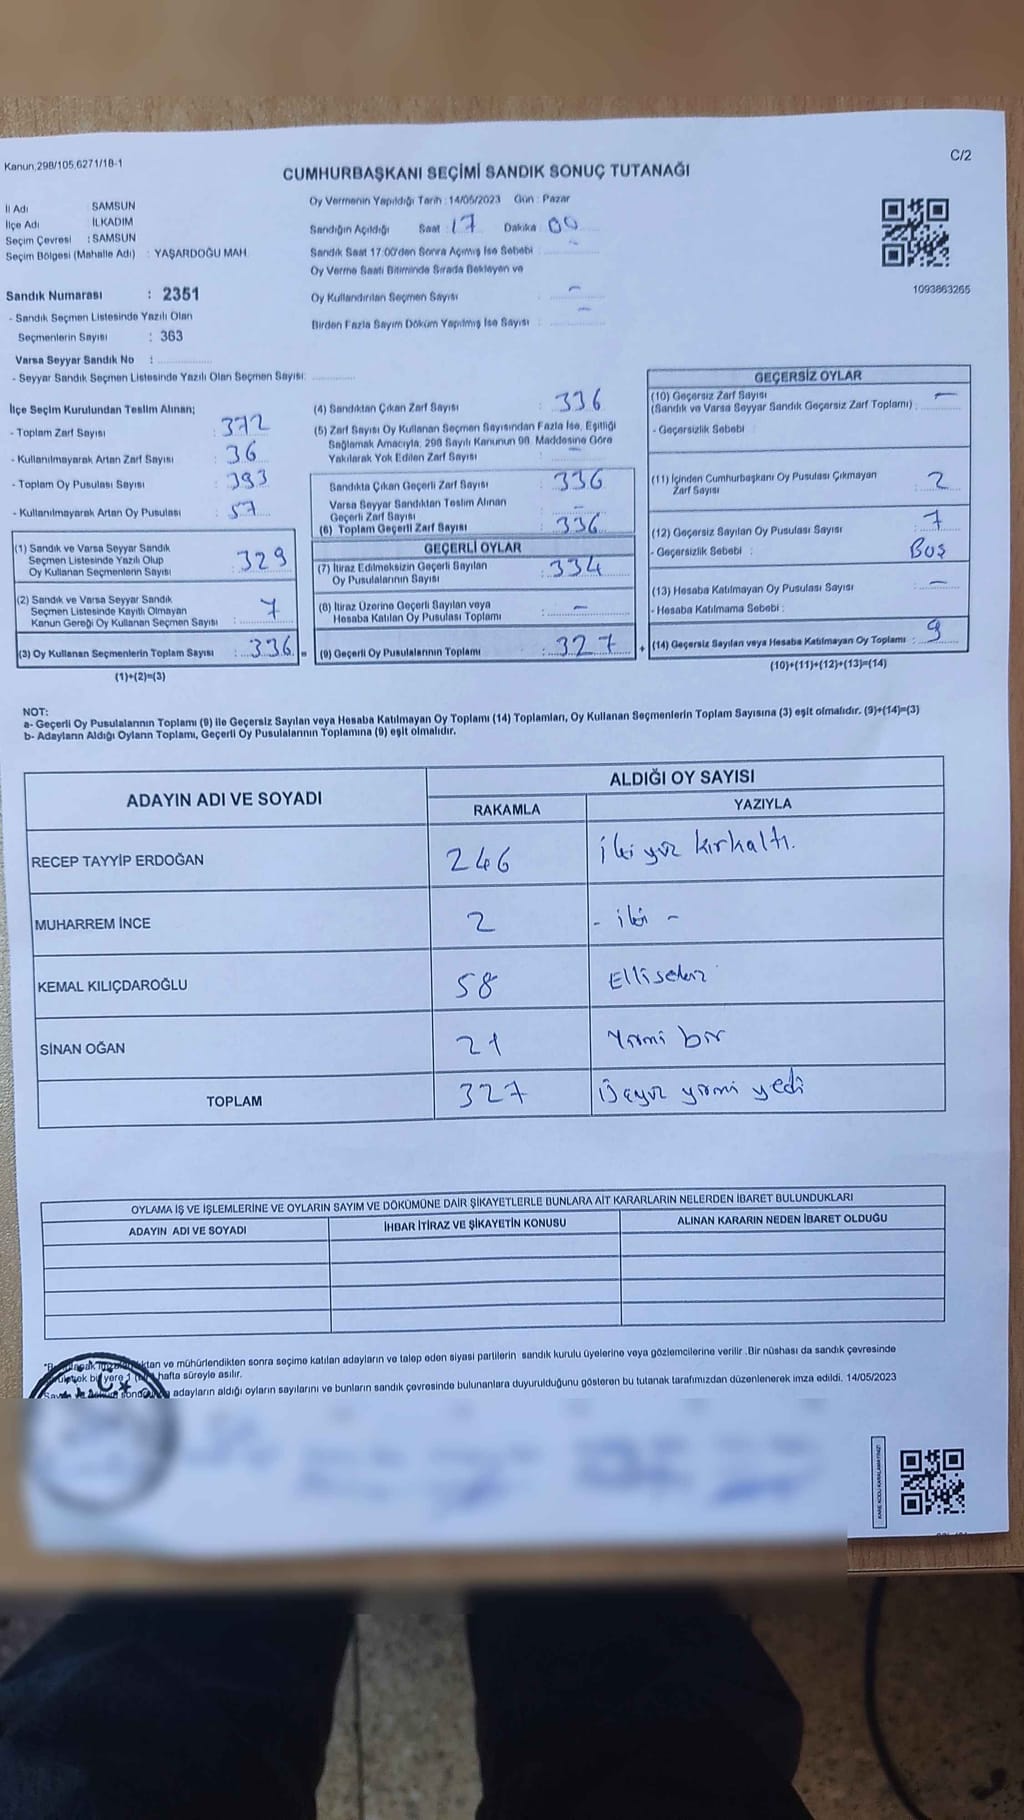 Kanun:298/105,6271/18-1
C/2
CUMHURBAŞKANI SEÇİMİ SANDIK SONUÇ TUTANAĞI
İl Adı SAMSUN
İlçe Adı İLKADIM
Seçim Çevresi : SAMSUN
Seçim Bölgesi (Mahalle Adı) : YAŞARDOĞU MAH.
Oy Vermenin Yapıldığı Tarih : 14/05/2023 Gün : Pazar
Sandığın Açıldığı Saat : 17 Dakika : 00
Sandık Saat 17:00'den Sonra Açılmış İse Sebebi : -
Oy Verme Saati Bitiminde Sırada Bekleyen ve
Oy Kullandırılan Seçmen Sayısı : -
Birden Fazla Sayım Döküm Yapılmış İse Sayısı : -
1093863265
Sandık Numarası : 2351
- Sandık Seçmen Listesinde Yazılı Olan
Seçmenlerin Sayısı : 363
Varsa Seyyar Sandık No :
- Seyyar Sandık Seçmen Listesinde Yazılı Olan Seçmen Sayısı:
İlçe Seçim Kurulundan Teslim Alınan;
- Toplam Zarf Sayısı : 372
- Kullanılmayarak Artan Zarf Sayısı : 36
- Toplam Oy Pusulası Sayısı : 393
- Kullanılmayarak Artan Oy Pusulası : 57
(1) Sandık ve Varsa Seyyar Sandık
Seçmen Listesinde Yazılı Olup
Oy Kullanan Seçmenlerin Sayısı : 329
(2) Sandık ve Varsa Seyyar Sandık
Seçmen Listesinde Kayıtlı Olmayan
Kanun Gereği Oy Kullanan Seçmen Sayısı : 7
(3) Oy Kullanan Seçmenlerin Toplam Sayısı : 336 =
(1)+(2)=(3)
(4) Sandıktan Çıkan Zarf Sayısı : 336
(5) Zarf Sayısı Oy Kullanan Seçmen Sayısından Fazla İse, Eşitliği
Sağlamak Amacıyla, 298 Sayılı Kanunun 98. Maddesine Göre
Yakılarak Yok Edilen Zarf Sayısı : -
Sandıkta Çıkan Geçerli Zarf Sayısı : 336
Varsa Seyyar Sandıktan Teslim Alınan
Geçerli Zarf Sayısı : -
(6) Toplam Geçerli Zarf Sayısı : 336
GEÇERLİ OYLAR
(7) İtiraz Edilmeksizin Geçerli Sayılan
Oy Pusulalarının Sayısı : 334
(8) İtiraz Üzerine Geçerli Sayılan veya
Hesaba Katılan Oy Pusulası Toplamı : -
(9) Geçerli Oy Pusulalarının Toplamı : 327 +
GEÇERSİZ OYLAR
(10) Geçersiz Zarf Sayısı
(Sandık ve Varsa Seyyar Sandık Geçersiz Zarf Toplamı) : -
- Geçersizlik Sebebi :
(11) İçinden Cumhurbaşkanı Oy Pusulası Çıkmayan
Zarf Sayısı : 2
(12) Geçersiz Sayılan Oy Pusulası Sayısı : 7
- Geçersizlik Sebebi : Boş
(13) Hesaba Katılmayan Oy Pusulası Sayısı : -
- Hesaba Katılmama Sebebi :
(14) Geçersiz Sayılan veya Hesaba Katılmayan Oy Toplamı : 9
(10)+(11)+(12)+(13)=(14)
NOT:
a- Geçerli Oy Pusulalarının Toplamı (9) ile Geçersiz Sayılan veya Hesaba Katılmayan Oy Toplamı (14) Toplamları, Oy Kullanan Seçmenlerin Toplam Sayısına (3) eşit olmalıdır. (9)+(14)=(3)
b- Adayların Aldığı Oyların Toplamı, Geçerli Oy Pusulalarının Toplamına (9) eşit olmalıdır.
ADAYIN ADI VE SOYADI
ALDIĞI OY SAYISI
RAKAMLA YAZIYLA
RECEP TAYYİP ERDOĞAN 246 İki yüz kırkaltı.
MUHARREM İNCE 2 - iki -
KEMAL KILIÇDAROĞLU 58 Ellisekiz
SİNAN OĞAN 21 Yirmi bir
TOPLAM 327 Üçyüz yirmi yedi
OYLAMA İŞ VE İŞLEMLERİNE VE OYLARIN SAYIM VE DÖKÜMÜNE DAİR ŞİKAYETLERLE BUNLARA AİT KARARLARIN NELERDEN İBARET BULUNDUKLARI
ADAYIN ADI VE SOYADI İHBAR İTİRAZ VE ŞİKAYETİN KONUSU ALINAN KARARIN NEDEN İBARET OLDUĞU
ve mühürlendikten sonra seçime katılan adayların ve talep eden siyasi partilerin sandık kurulu üyelerine veya gözlemcilerine verilir .Bir nüshası da sandık çevresinde
bir yere 1 hafta süreyle asılır.
adayların aldığı oyların sayılarını ve bunların sandık çevresinde bulunanlara duyurulduğunu gösteren bu tutanak tarafımızdan düzenlenerek imza edildi. 14/05/2023